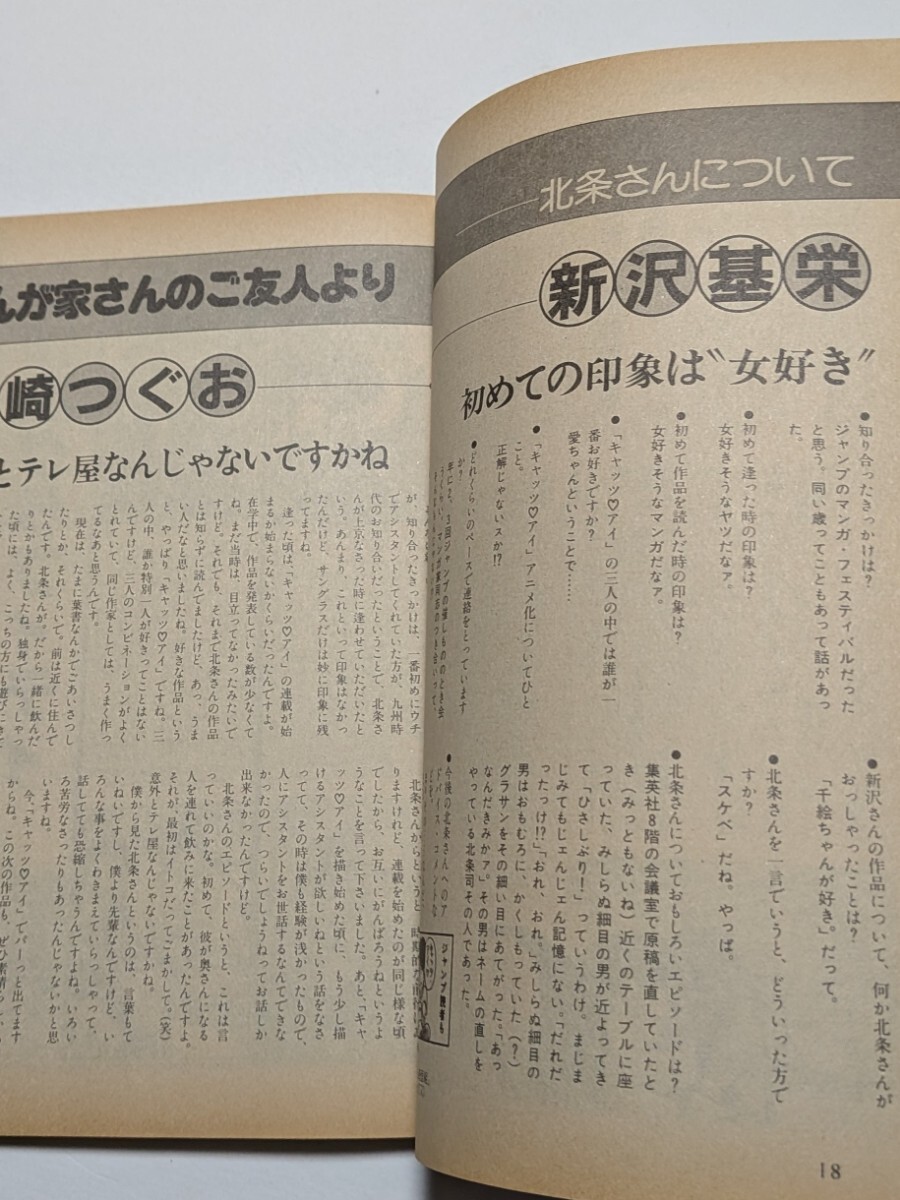 北条さんについて
新沢基栄
初めての印象は〝女好き〟
●知り合ったきっかけは?
ジャンプのマンガ・フェスティバルだった
と思う。同い歳ってこともあって話があっ
た。
●初めて逢った時の印象は?
女好きそうなヤツだなァ。
●初めて作品を読んだ時の印象は?
女好きそうなマンガだなァ。
●「キャッツ♡アイ」の三人の中では誰が一
番お好きですか?
愛ちゃんということで……
●「キャッツ♡アイ」アニメ化についてひと
こと。
正解じゃないスか!?
●どれくらいのペースで連絡をとっています
か?
●新沢さんの作品について、何か北条さんが
おっしゃったことは?
「千絵ちゃんが好き。」だって。
●北条さんを一言でいうと、どういった方で
すか?
「スケベ」だね。やっぱ。
●北条さんについておもしろいエピソードは?
集英社8階の会議室で原稿を直していたと
き(みっともないね)近くのテーブルに座
っていた、みしらぬ細目の男が近よってき
て「ひさしぶり!」っていうわけ。まじま
じみてもじぇんじぇん記憶にない。「だれだ
ったっけ!?」「おれ、おれ。」みしらぬ細目の
男はおもむろに、かくしもっていた(?)
グラサンをその細い目にあてがった。「あっ
なんだきみかァ」。その男はネームの直しを
やっている北条司その人であった。
●今後の北条さんへのア
ドバイス・コメントな
ジャンプ読者も
18
んが家さんのご友人より
崎つぐお
とテレ屋なんじゃないですかね
知り合ったきっかけは、一番初めにウチ
でアシスタントしてくれていた方が、九州時
代のお知り合いだったということで、北条さ
んが上京なさった時に逢わせていただいたと
いう。あんまり、これといって印象はなかっ
たんだけど、サングラスだけは妙に印象に残
ってますね。
逢った頃は、「キャッツ♡アイ」の連載が始
まるか始まらないかくらいだったんですよ。
在学中で、作品を発表している数が少なくて
ね。まだ当時は、目立ってなかったみたいで
すけれど。それでも、それまで北条さんの作品
とは知らずに読んでましたけど、あっ、うま
い人だなと思いましたね。好きな作品という
と、やっぱり「キャッツ♡アイ」ですね。三
人の中、誰か特別一人が好きってことはない
んですけど、三人のコンビネーションがよく
とれていて、同じ作家としては、うまく作っ
てるなあと思うんです。
現在は、たまに葉書なんかでごあいさつし
たりとか、それくらいで。前は近くに住んで
りとかもありましたね。独身でいらっしゃっ
た頃には、よく、こっちの方にも遊びにきて
りますけれど、連載を始めたのが同じ様な頃
でしたから、お互いにがんばろうねというよ
うなことを言って下さいました。あと、「キャ
ッツ♡アイ」を描き始めた頃に、もう少し描
けるアシスタントが欲しいねという話をなさ
ってて、その時は僕も経験が浅かったもので、
人にアシスタントをお世話するなんてできな
かったので、つらいでしょうねってお話しか
出来なかったんですけど。
北条さんのエピソードというと、これは言
っていいのかな。初めて、彼が奥さんになる
人を連れて飲みに来たことがあったんですよ。
それが、最初はイトコだってごまかして。(笑)
意外とテレ屋なんじゃないですかね。
僕から見た北条さんというのは、言葉もて
いねいですし、僕より先輩なんですけど、い
ろんな事をよくわきまえていらっしゃって、
話してても恐縮しちゃうんですよね。いろい
ろ苦労なさったりもあったんじゃないかと思
いますね。
今、「キャッツ♡アイ」でパーっと出てます
からね。この次の作品も、ぜひ素晴らしいも